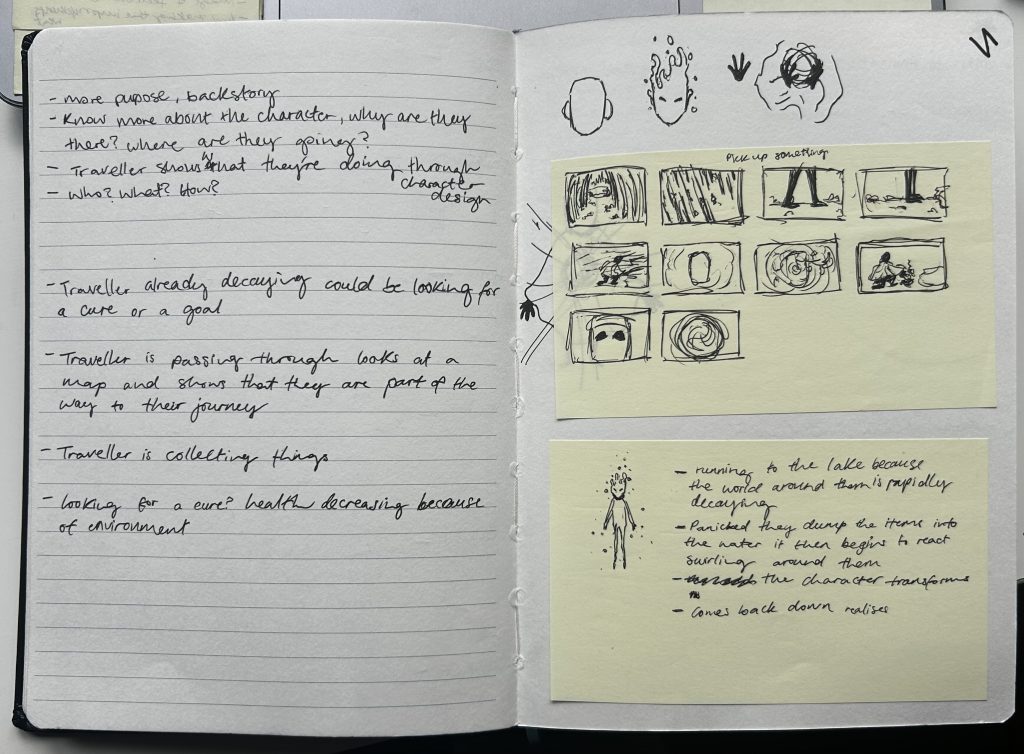 - more pupose, backstory
- Know more about the character, why are they
there? where are they going?
- Traveller shows what they're doing through
character
design
- who? what? How?
- Traveller already decaying could be looking for
a cure or a goal
- Traveller is passing through looks at a
map and shows that they are part of the
way to their journey
- Traveller is collecting things
- looking for a cure? health decreasing because
of environment
Pick up something
- running to the lake because
the world around them is rapidly
decaying
- Panicked they dump the items into
the water it then begins to react
swirling around them
- the character transforms
- Comes back down realises